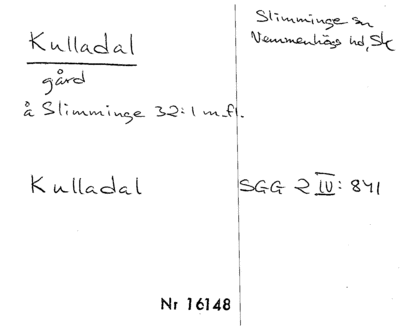 Kulladal
gård
å Slimminge 32:1 m.fl.
Slimminge sn
Vemmenhögs hd, Sk
Kulladal
SGG 2 IV: 841
Nr 16148